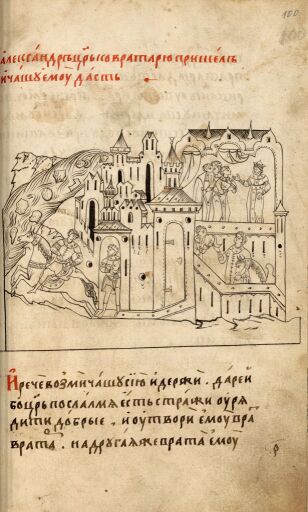 100
александръ црь ко вратарю пришелъ
и чашу емоу дасть
И рече возми чашу сїю и держи . дарей
бо црь послал мѧ есть стражи оурѧ
дити добрые . и оутвори емоу вра
врата . на другаѧ же врата емоу
р